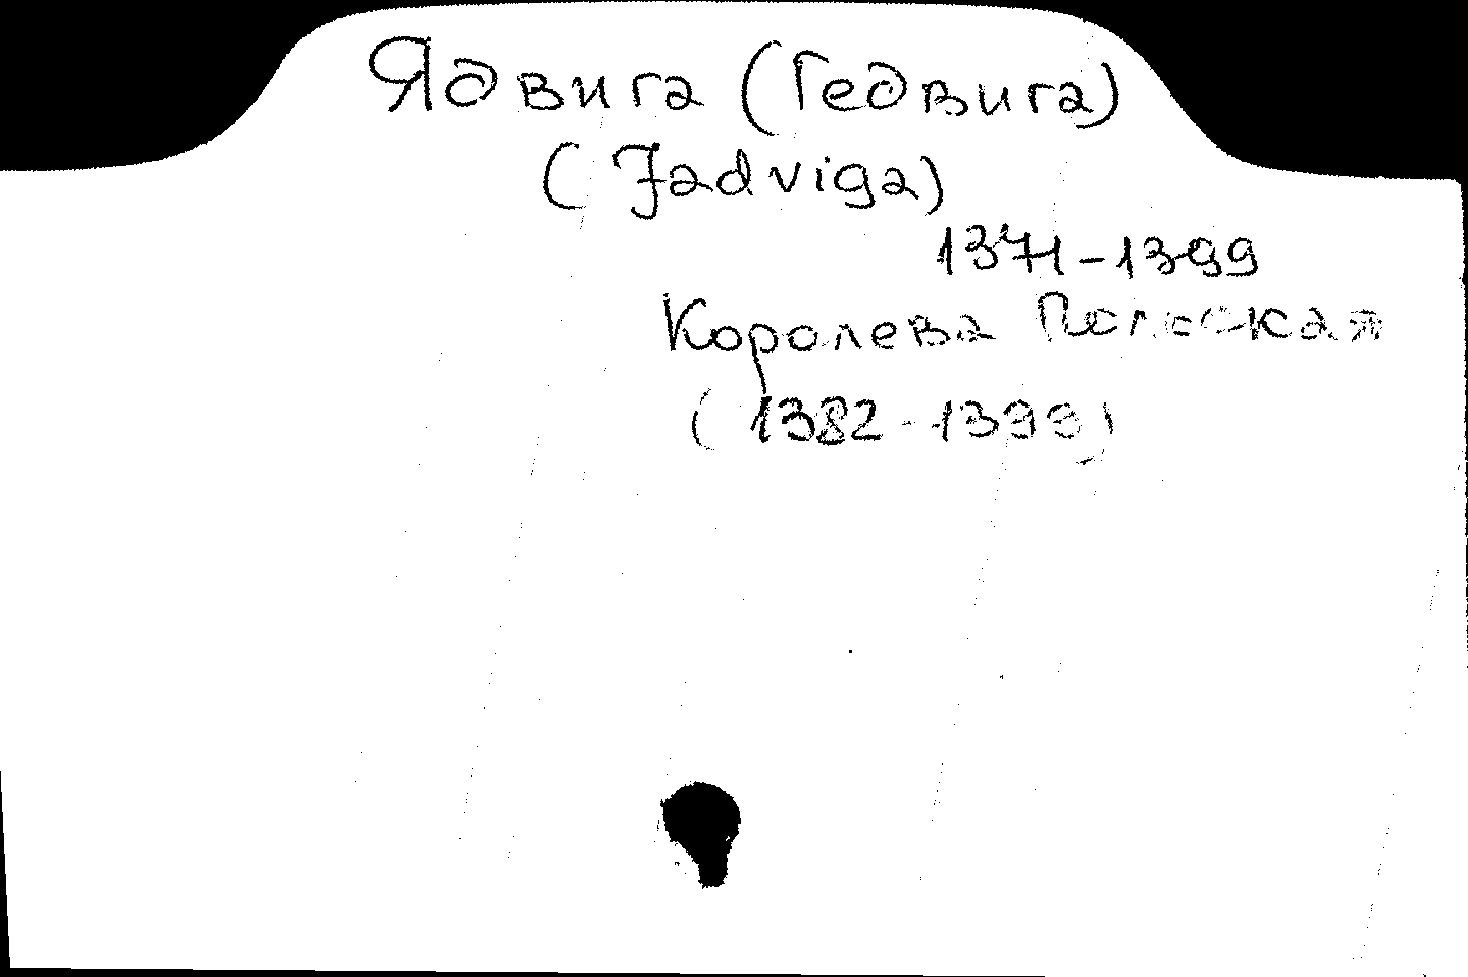 Ядвига (Гедвига)
(Jadviga)
1371-1399
Королева Польская
(1382-1399)